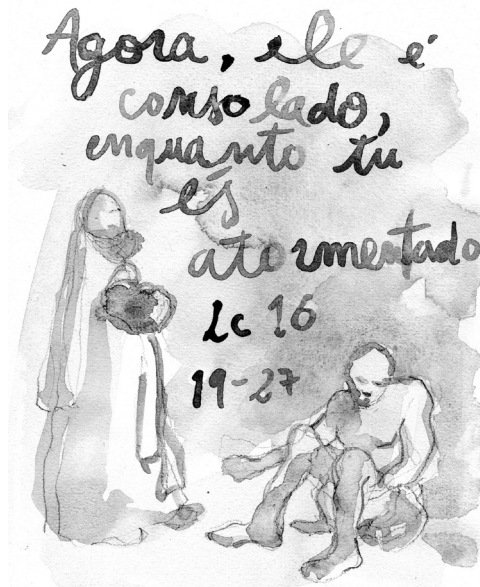 Agora, ele é
consolado,
enquanto tu
és
atormentado
Lc 16
19-27